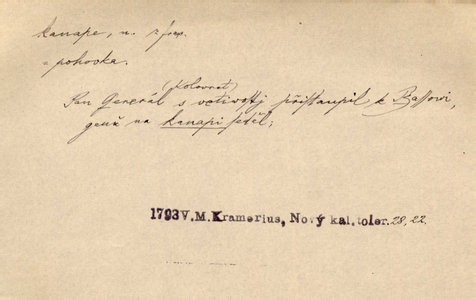 kanape, n. z franc.
= pohovka.
(Kolovrat)
Pan Generál s votivostj přistaupil k Bassowi,
genž na kanapi seděl;
1793 V. M. Kramerius, Nový kal. toler. 28, 22.